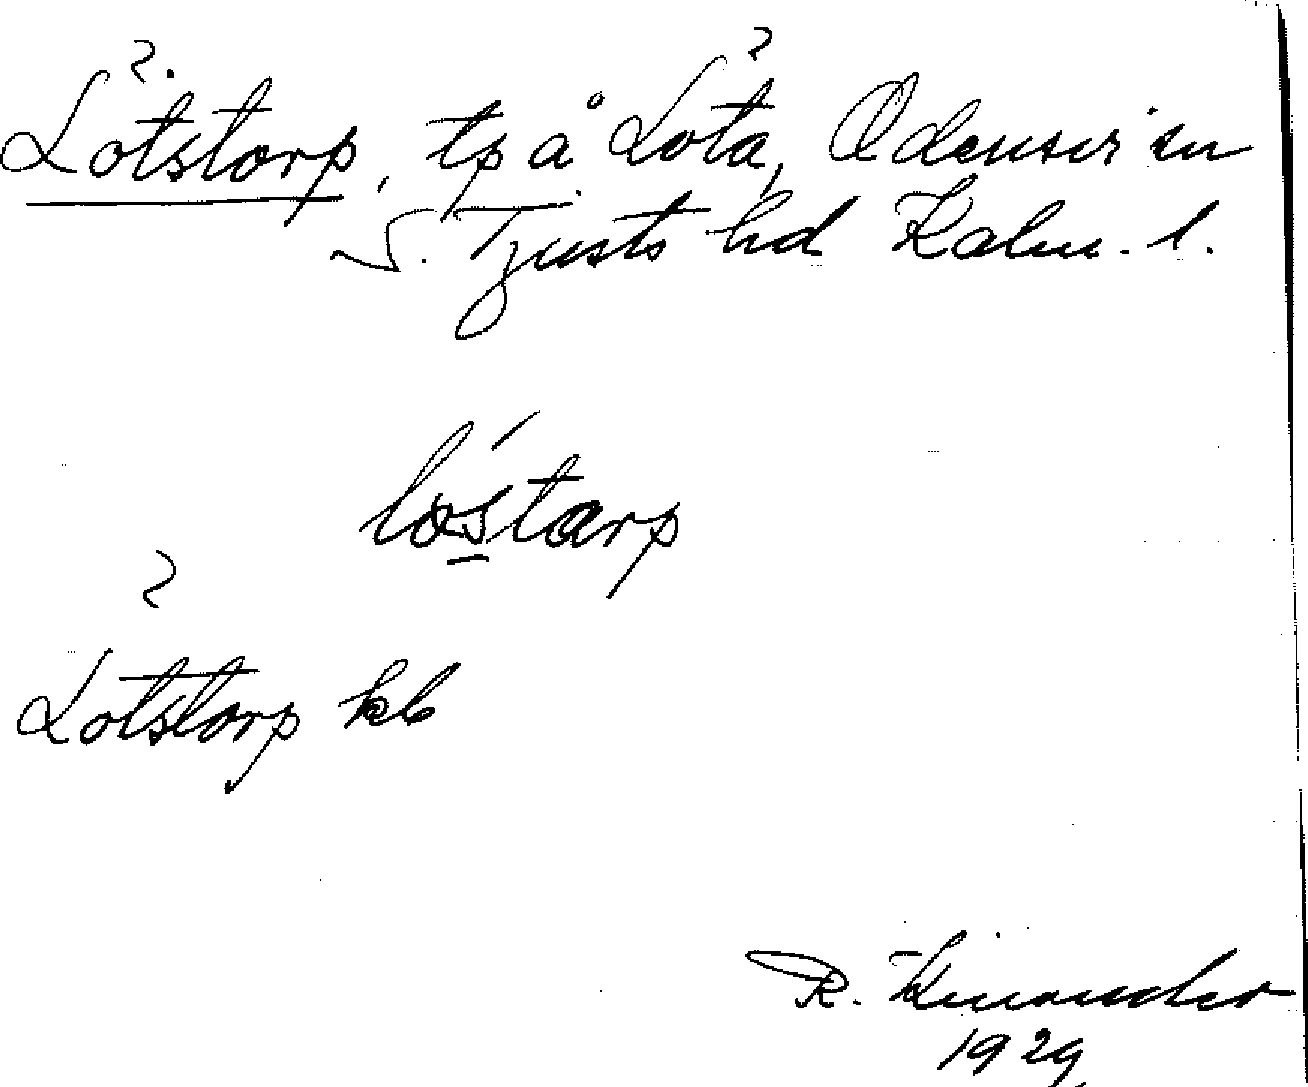 ?
?
Lotstorp, tp å Lota, Odensvi sn
S. Tjusts hd Kalm. l.
lo´starp
?
Lotstorp kb
R. Kinander
1929